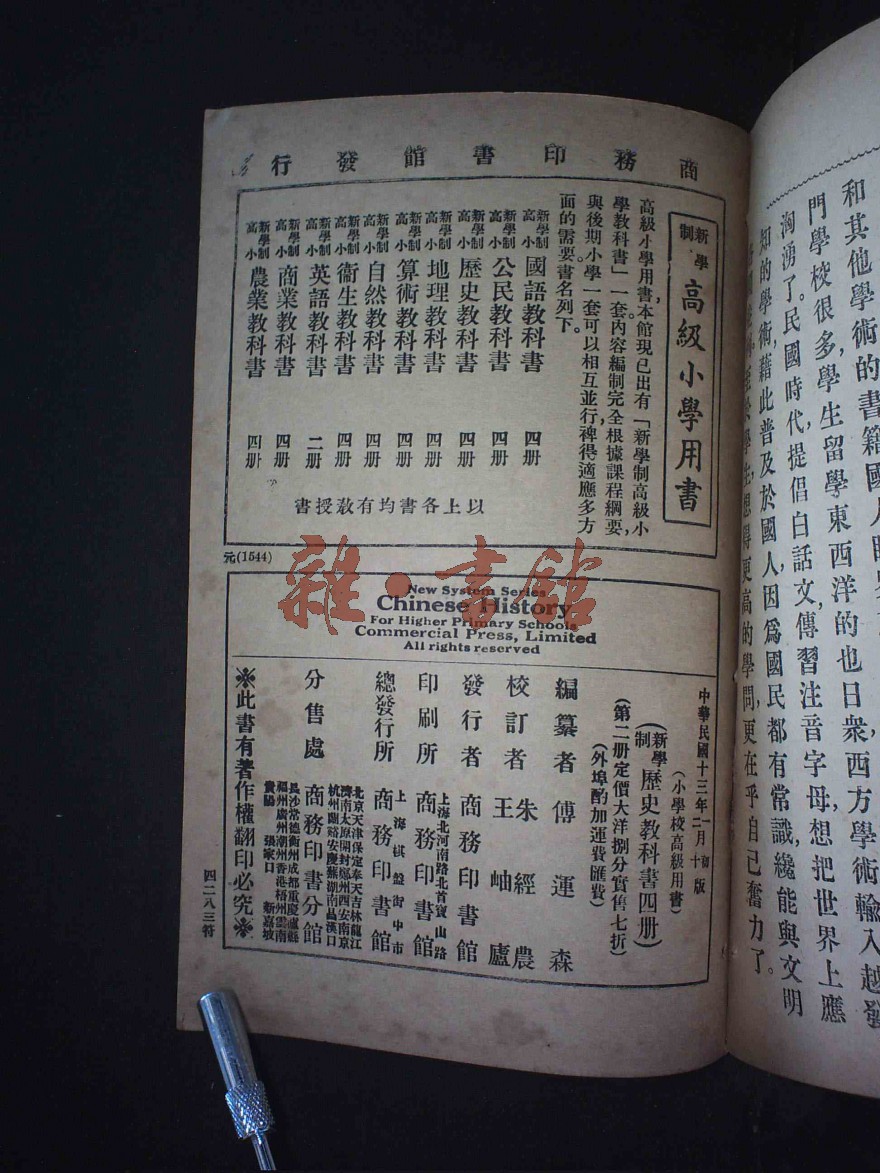 和其他學術的書籍國人
門學校很多,學生留學東西洋的也日衆,西方學術輸入越發
洶湧了。民國時代,提倡白話文,傳習注音字母,想把世界上應
知的學術,藉此普及於國人,因爲國民都有常識,纔能與文明
學生,想得更高的學問,更在乎自己奮力了。
商務印書館發行
新學制
高級小學用書
高級小學用書,本館現已出有「新學制高級小
學教科書」一套,內容編制完全根據課程綱要,
與後期小學一套可以相互並行,裨得適應多方
面的需要。書名列下。
新學制高小 國語教科書 四册
新學制高小 公民教科書 四册
新學制高小 歷史教科書 四册
新學制高小 地理教科書 四册
新學制高小 算術教科書 四册
新學制高小 自然教科書 四册
新學制高小 衞生教科書 四册
新學制高小 英語教科書 二册
新學制高小 商業教科書 四册
新學制高小 農業教科書 四册
以上各書均有教授書
元(1544)
雜·書館
New System Series
Chinese History
For Higher Primary Schools
Commercial Press, Limited
All rights reserved
中華民國十三年二月初版
(小學校高級用書)
(新學制歷史教科書四册)
(第二册定價大洋捌分實售七折)
(外埠酌加運費匯費)
編纂者 傅運森
校訂者 朱經農
王岫廬
發行者 商務印書館
印刷所 上海北河南路北首寶山路
商務印書館
總發行所 上海棋盤街中市
商務印書館
分售處 北京天津保定奉天吉林龍江
濟南太原開封鄭州西安南京
杭州蘭谿安慶蕪湖南昌漢口
商務印書分館
長沙常德衡州成都重慶瀘縣
福州廣州潮州香港梧州雲南
貴陽 張家口 新嘉坡
※此書有著作權翻印必究※
四二八三符